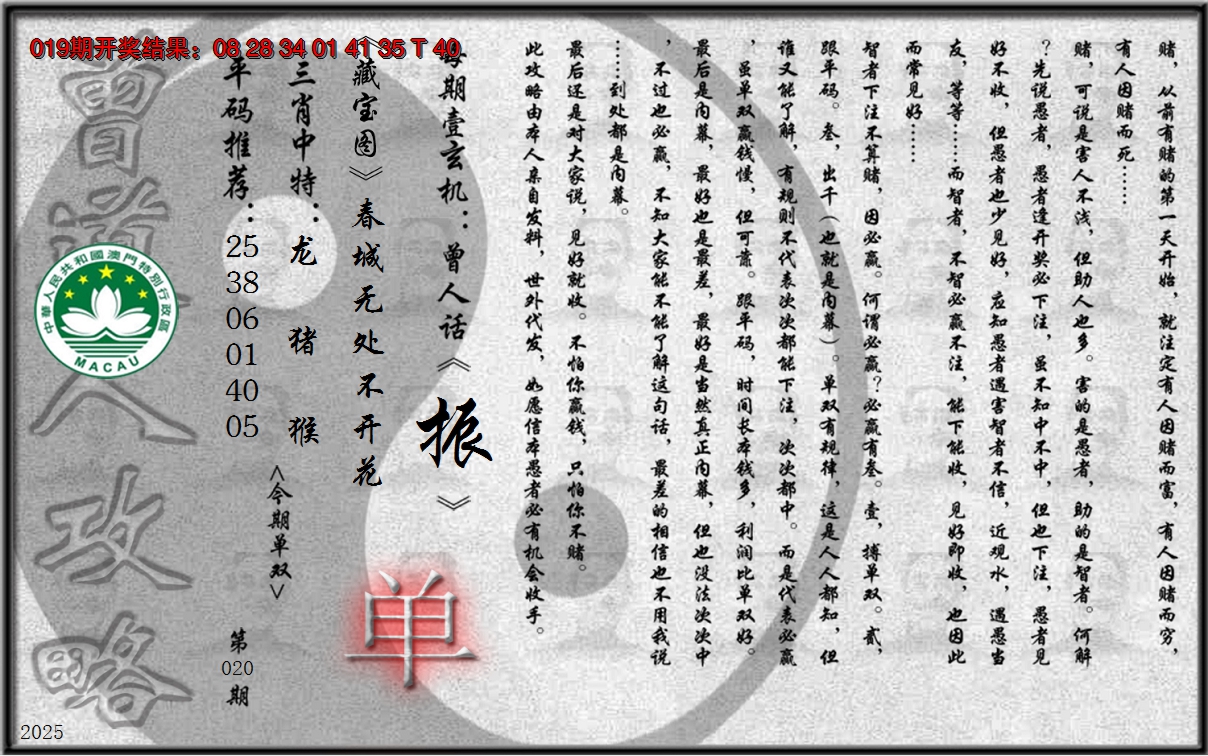 019期开奖结果：08 28 34 01 41 35 T 40
赌，从前有赌的第一天开始，就注定有人因赌而富，有人因赌而穷，
有人因赌而死……
赌，可说是害人不浅，但助人也多。害的是愚者，助的是智者。何解
？先说愚者，愚者逢开奖必下注，虽不知中不中，但也下注，愚者见
好不收，但愚者也少见好，应知愚者遇害智者不信，近观水，遇愚当
友，等等……而智者，不智必赢不注，能下能收，见好即收，也因此
而常见好……
智者下注不算赌，因必赢。何谓必赢？必赢有叁。壹，搏单双。贰，
跟平码。叁，出千（也就是内幕）。单双有规律，这是人人都知，但
谁又能了解，有规则不代表次次都能下注，次次都中。而是代表必赢
，虽单双赢钱慢，但可靠。跟平码，时间长本钱多，利润比单双好。
最后是内幕，最好也是最差，最好是当然真正内幕，但也没法次次中
，不过也必赢，不知大家能不能了解这句话，最差的相信也不用我说
……到处都是内幕。
最后还是对大家说，见好就收。不怕你赢钱，只怕你不赌。
此攻略由本人亲自发料，世外代发，如愿信本愚者必有机会收手。
每期壹玄机：曾人话《振》
《藏宝图》春城无处不开花
三肖中特：龙 猪 猴
<今期单双>
单
平码推荐：
25
38
06
01
40
05
第
020
期
曾道人攻略
中華人民共和國澳門特別行政區
MACAU
2025